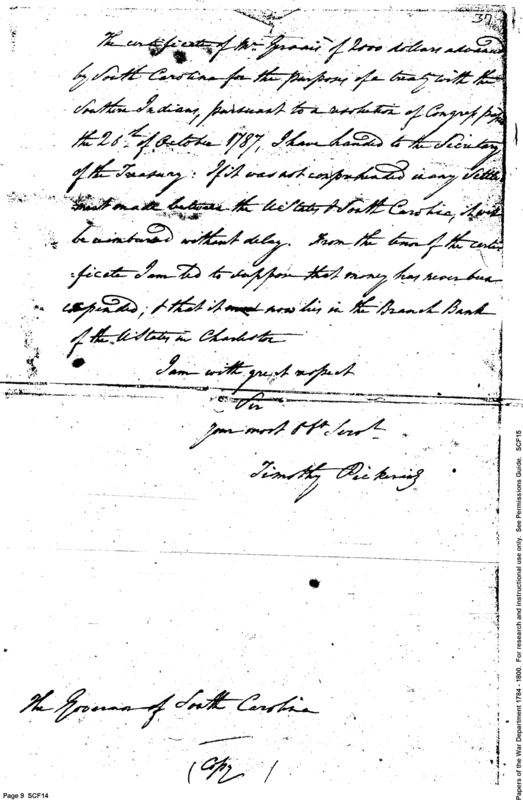 37
The certificate of Mr. Gervais of 2000 dollars advanced
by South Carolina for the purposes of a treaty with the
Southern Indians, pursuant to a resolution of Congress
the 26th of October 1787, I have handed to the Secretary
of the Treasury: If it was not comprehended in any Settle-
ment made between the UStates & South Carolina, it will
be reimbursed without delay. From the tenor of the certi-
-ficate I am led to suppose that money has never been
expended; & that it now lies in the Branch Bank
of the UStates in Charleston
I am with great respect
Sir
your most Obt Servt
Timothy Pickering
The Governor of South Carolina
(Copy)
Page 9 SCF14
Papers of the War Department 1784 - 1800. For research and instructional use only. See Permissions Guide. SCF15